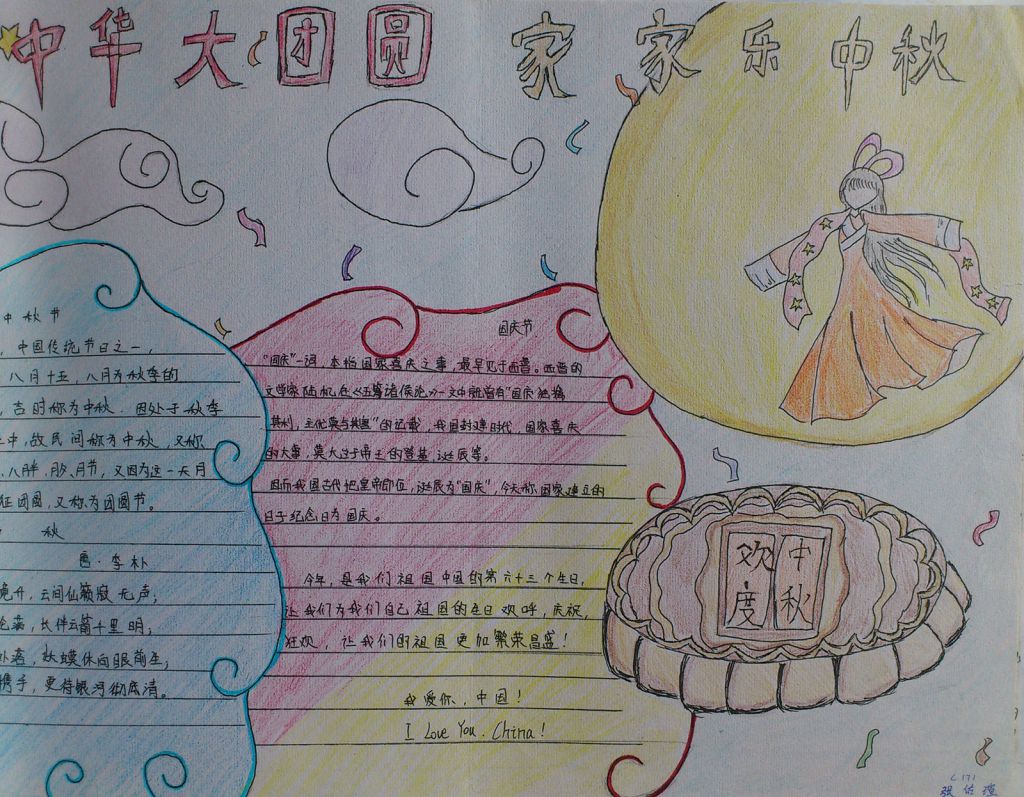 中华大团圆 家家乐中秋
中秋节
，中国传统节日之一，
八月十五，八月为秋季的
，古时称为中秋．因处于秋季
之中，故民间称为中秋，又称
、八月半、月夕、月节，又因为这一天月
征团圆，又称为团圆节。
秋
唐·李朴
升，云间仙籁寂无声；
长伴云衢千里明；
妖蟆休向眼前生；
携手，更待银河彻底清。
国庆节
“国庆”一词，本指国家喜庆之事，最早见于西晋。西晋的
文学家陆机在《五等诸侯论》一文中就曾有“国庆独飨
其利，主忧莫与其害”的记载，我国封建时代，国家喜庆
的大事，莫大过于帝王的登基，诞辰等。
因而我国古代把皇帝即位，诞辰为“国庆”，今天称国家建立的
日子纪念日为国庆。
今年，是我们祖国中国的第六十三个生日，
让我们为我们自己祖国的生日欢呼，庆祝，
狂欢，让我们的祖国更加繁荣昌盛！
我爱你，中国！
I Love You．China！
欢度
中秋